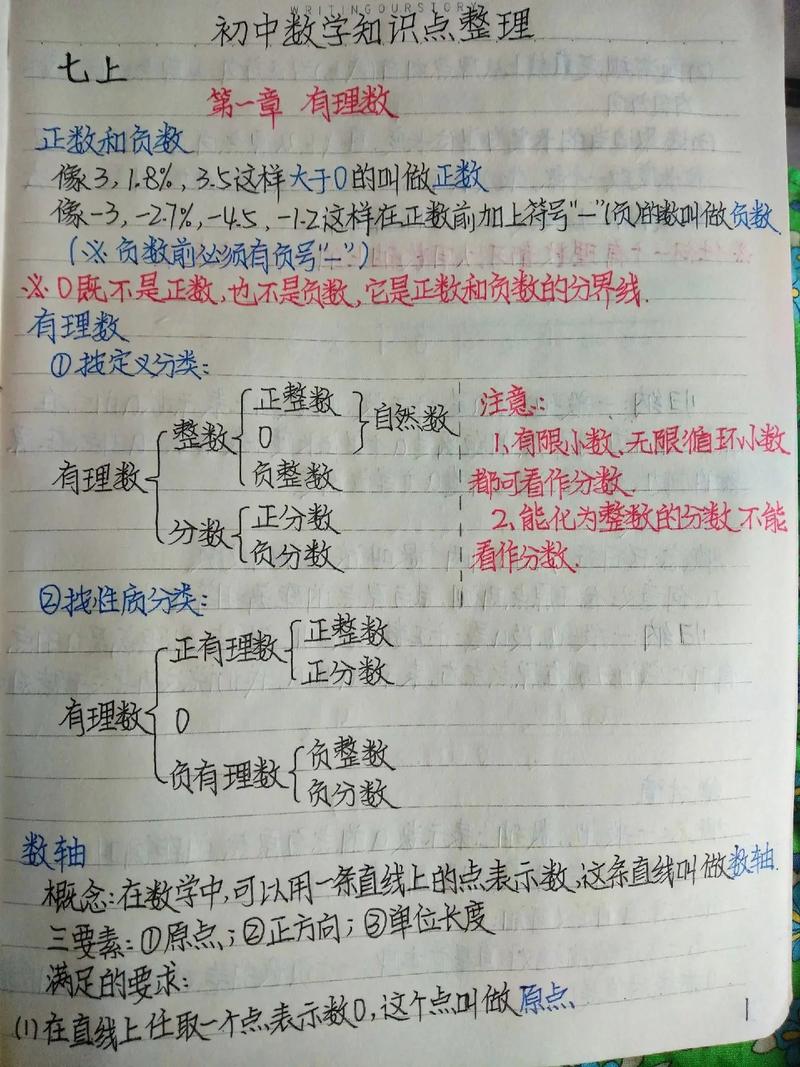 WRITINGOURSTORY
初中数学知识点整理
七上
第一章 有理数
正数和负数
像3,1.8%,3.5这样大于0的叫做正数
像-3,-2.7%,-4.5,-1.2这样在正数前加上符号"-"(负)的数叫做负数.
(※负数前必须有负号"-")
※0既不是正数,也不是负数,它是正数和负数的分界线.
有理数
①按定义分类:
有理数
整数
正整数
0
负整数
自然数
分数
正分数
负分数
注意:
1、有限小数、无限循环小数
都可看作分数.
2、能化为整数的分数不能
看作分数.
②按性质分类:
有理数
正有理数
正整数
正分数
0
负有理数
负整数
负分数
数轴
概念:在数学中,可以用一条直线上的点表示数,这条直线叫做数轴.
三要素:①原点;②正方向;③单位长度
满足的要求:
(1)在直线上任取一个点表示数0,这个点叫做原点、
1